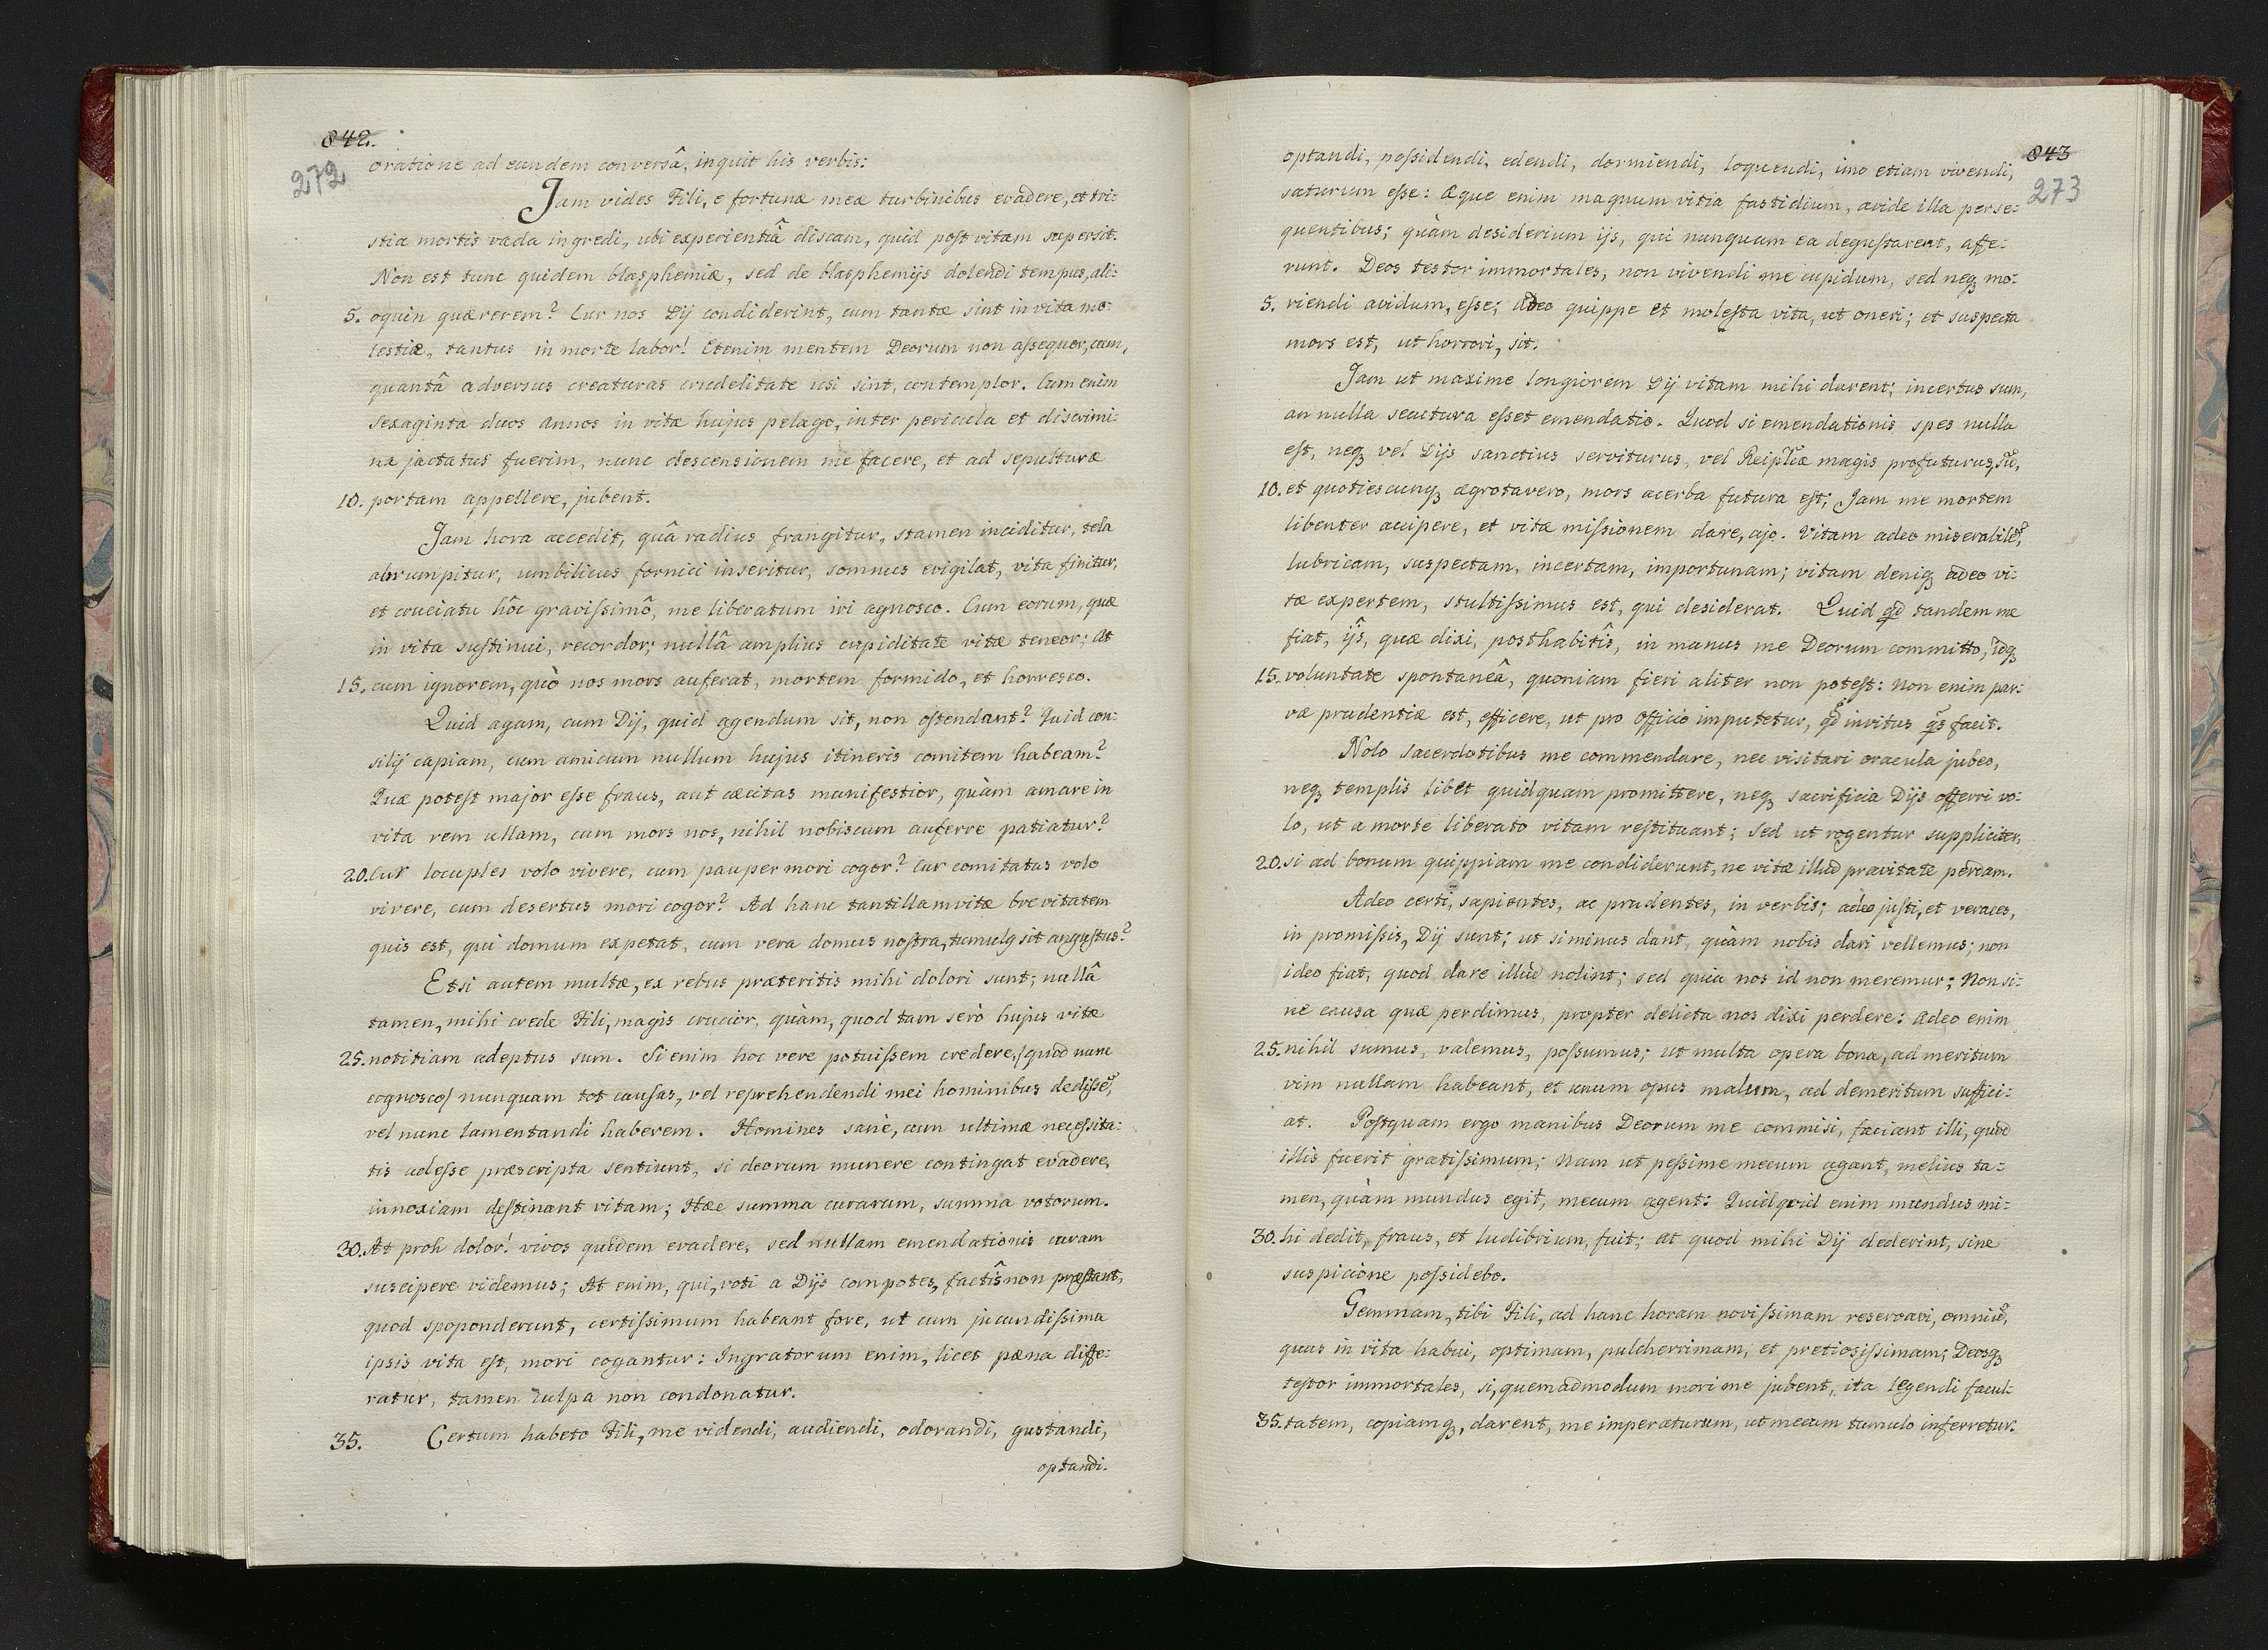 842.
272
oratione ad eundem conversâ, inquit his verbis:
Jam vides Fili, e fortunæ meæ turbinibus evadere, et tri:
stia mortis vada ingredi, ubi experientiâ discam, quid post vitam supersit.
Non est tunc quidem blasphemiæ, sed de blasphemijs dolendi tempus, ali:
5. oquin quærerem? Cur nos Dij condiderint, cum tantæ sint in vita mo:
lestiæ, tantus in morte labor! Etenim mentem Deorum non assequor, cum,
quantâ adversus creaturas crudelitate usi sint, contemplor. Cum enim
sexaginta duos annos in vitæ hujus pelago, inter pericula et discrimi:
na jactatus fuerim, nunc descensionem me facere, et ad sepulturæ
10. portam appellere, jubent.
Jam hora accedit, quâ radius frangitur, stamen inciditur, tela
abrumpitur, umbilicus fornici inseritur, somnus evigilat, vita finitur,
et cruciatu hôc gravissimô, me liberatum iri agnosco. Cum eorum, quæ
in vita sustinui, recordor; nullâ amplius cupiditate vitæ teneor; At
15. cum ignorem, quò nos mors auferat, mortem formido, et horresco.
Quid agam, cum Dij, quid agendum sit, non ostendant? Quid con:
silij capiam, cum amicum nullum hujus itineris comitem habeam?
Quæ potest major esse fraus, aut cæcitas manifestior, quàm amare in
vita rem ullam, cum mors nos, nihil nobiscum auferre patiatur?
20. Cur locuples volo vivere, cum pauper mori cogor? Cur comitatus volo
vivere, cum desertus mori cogor? Ad hanc tantillam vitæ brevitatem
quis est, qui domum expetat, cum vera domus nostra, tumulq sit angustus?
Etsi autem multæ, ex rebus præteritis mihi dolori sunt; nullâ
tamen, mihi crede Fili, magis crucior, quàm, quod tam serò hujus vitæ
25. notitiam adeptus sum. Si enim hoc vere potuissem credere, /quod nunc
cognosco/ nunquam tot causas, vel reprehendendi mei hominibus dedissē,
vel nunc lamentandi haberem. Homines sanè, cum ultimæ necessita:
tis adesse præscripta sentiunt, si deorum munere contingat evadere,
innoxiam destinant vitam; Hæc summa curarum, summa votorum.
30. At proh dolor! vivos quidem evadere, sed nullam emendationis curam
suscipere videmus; At enim, qui, voti a Dijs compotes, factîs non præstant,
quod spoponderunt, certissimum habeant fore, ut cum jucundissima
ipsis vita est, mori cogantur: Ingratorum enim, licet pæna diffe:
ratur, tamen culpa non condonatur.
35. Certum habeto Fili, me videndi, audiendi, odorandi, gustandi,
optandi.
843
273
optandi, possidendi, edendi, dormiendi, loquendi, imo etiam vivendi,
saturum esse: Æque enim magnum vitia fastidium, avide illa perse:
quentibus; quàm desiderium ijs, qui nunquam ea degustarent, affe:
runt. Deos testor immortales, non vivendi me cupidum, sed neqꝫ mo:
5. riendi avidum, esse; Adeo quippe et molesta vita, ut oneri; et suspecta
mors est, ut horrori, sit.
Jam ut maxime longiorem Dij vitam mihi darent; incertus sum,
an nulla secutura esset emendatio. Quod si emendationis spes nulla
est, neqꝫ vel Dijs sanctius serviturus, vel Reiplcæ magis profuturus, sū,
10. et quotiescunqꝫ ægrotavero, mors acerba futura est; Jam me mortem
libenter accipere, et vitæ missionem dare, ajo. Vitam adeo miserabilē,
lubricam, suspectam, incertam, importunam; vitam deniqꝫ adeo vi:
tæ expertem, stultissimus est, qui desiderat. Quid qd tandem me
fiat, ijs, quæ dixi, posthabitîs, in manus me Deorum committo, idqꝫ
15. voluntate spontaneâ, quoniam fieri aliter non potest: Non enim par:
væ prudentiæ est, efficere, ut pro officio imputetur, qd invitus qs facit.
Nolo sacerdotibus me commendare, nec visitari oracula jubeo,
neqꝫ templis libet quidquam promittere, neqꝫ sacrificia Dijs offerri vo:
lo, ut a morte liberato vitam restituant; Sed ut rogentur suppliciter,
20. si ad bonum quippiam me condiderunt, ne vitæ illud pravitate perdam.
Adeo certi, sapientes, ac prudentes, in verbis; adeo justi, et veraces,
in promissis, Dij sunt; ut si minus dant, quàm nobis dari vellemus; non
ideo fiat, quod dare illud nolint; sed quia nos id non meremur; Non si:
ne causa quæ perdimus, propter delicta nos dixi perdere: Adeo enim
25. nihil sumus, valemus, possumus; ut multa opera bona, ad meritum
vim nullam habeant, et unum opus malum, ad demeritum suffici:
at. Postquam ergo manibus Deorum me commisi, faciant illi, quod
illis fuerit gratissimum; Nam ut pessime mecum agant, melius ta:
men, quàm mundus egit, mecum agent: Quidquid enim mundus mi:
30. hi dedit, fraus, et ludibrium, fuit; at quod mihi Dij dederint, sine
suspicione possidebo.
Gemmam, tibi Fili, ad hanc horam novissimam reservavi, omniū,
quas in vita habui, optimam, pulcherrimam, et pretiosissimam; Deosqꝫ
testor immortales, si, quemadmodum mori me jubent, ita legendi facul:
35. tatem, copiamqꝫ, darent, me imperaturum, ut mecum tumulo inferretur.